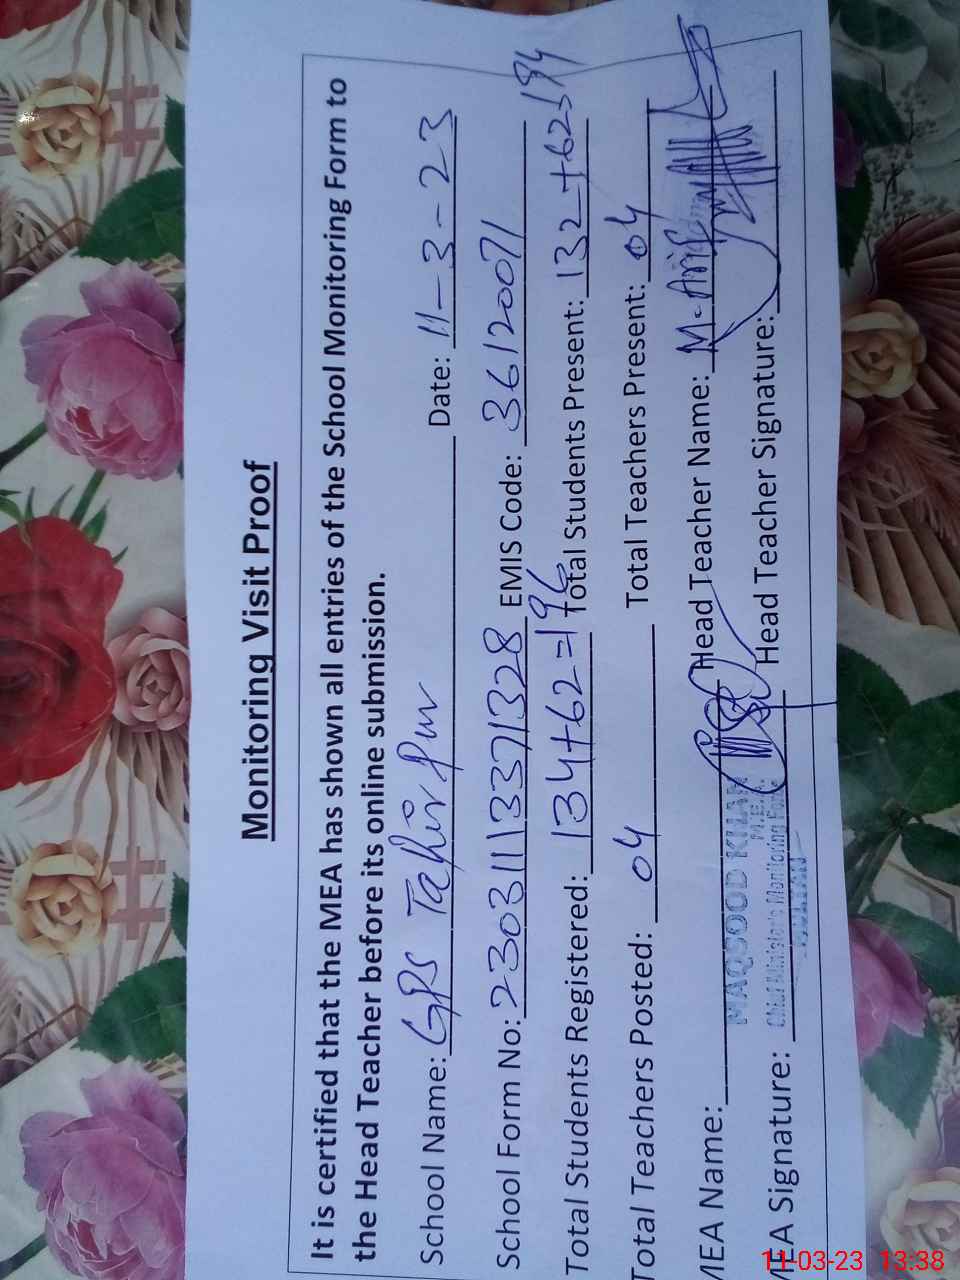 Monitoring Visit Proof
It is certified that the MEA has shown all entries of the School Monitoring Form to
the Head Teacher before its online submission.
School Name: GPS Tahir Pur Date: 11-3-23
School Form No: 23031113371328 EMIS Code: 36120071
Total Students Registered: 134+62=196 Total Students Present: 132+62 194
Total Teachers Posted: 04 Total Teachers Present: 04
MEA Name: MAQSOOD KHAN Head Teacher Name: M. Arif
M.E.A.
MEA Signature: Chief Minister's Monitoring Force Head Teacher Signature:
11-03-23 13:38